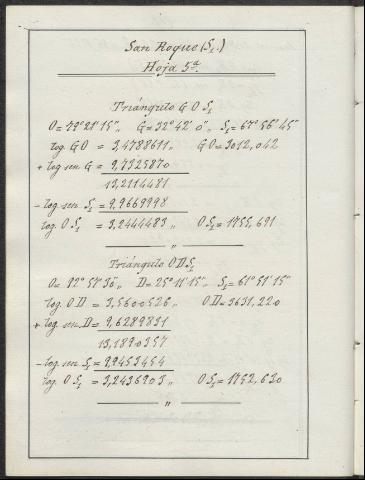 San Roque (S₁.)
Hoja 5ª.
Triángulo G O S₁
O = 79° 21' 15'',, G = 32° 42' 0'',, S₁ = 67° 56' 45''
log. G O = 3,4788611,, G O = 3012,042
+ log. sen. G = 9,7325870
13,2114481
- log. sen. S₁ = 9,9669998
log. O S₁ = 3,2444483,, O S₁ = 1755,691
"
Triángulo O D S₁
O = 92° 57' 30'',, D = 25° 11' 15'',, S₁ = 61° 51' 15''
log. O D = 3,5600526,, O D = 3631,220
+ log. sen. D = 9,6289831
13,1890357
- log. sen. S₁ = 9,9453454
log. O S₁ = 3,2436903,, O S₁ = 1752,630
"